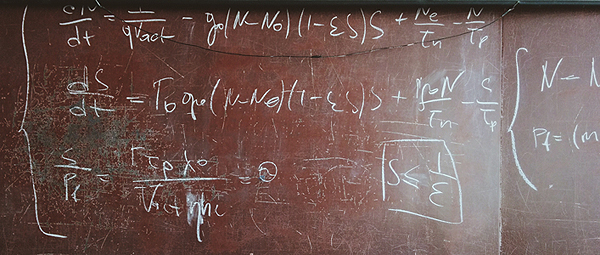 dN/dt = I/qVact - g₀(N-N₀)(1-εS)S + Ne/τn - N/τp
dS/dt = Γ g₀(N-N₀)(1-εS)S + Γβ₀N/τn - S/τp
S/Pf = Γτpλ₀/Vact ηhc = 
S ≤ 1/ε
N - N
Pf = (m